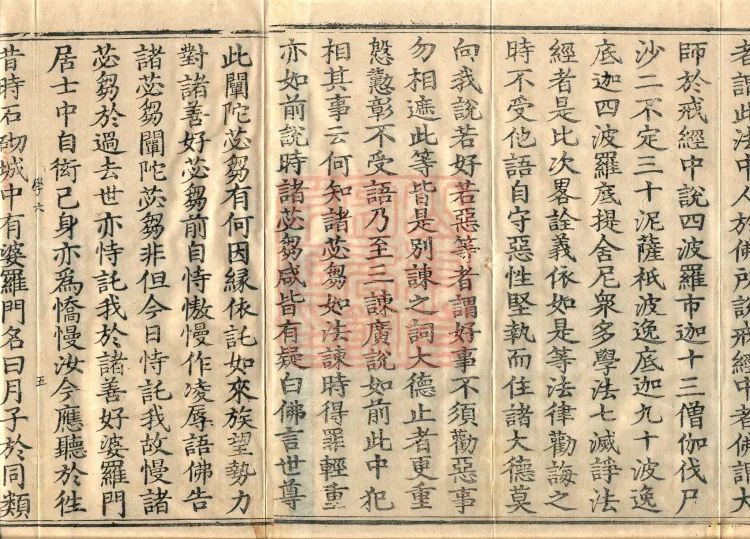 者謂此法中人於佛所說戒經中者佛謂大
師於戒經中說四波羅市迦十三僧伽伐尸
沙二不定三十泥薩祇波逸底迦九十波逸
底迦四波羅底提舍尼衆多學法七滅諍法
經者是比次畧詮義依如是等法律勸誨之
時不受他語自守惡性堅執而住諸大德莫
向我說若好若惡等者謂好事不須勸惡事
勿相遮此等皆是別諫之詞大德止者更重
慇懃彰不受語乃至三諫廣說如前此中犯
相其事云何知諸苾芻如法諫時得罪輕重
亦如前說時諸苾芻咸皆有疑白佛言世尊
此闡陀苾芻有何因緣依託如來族望勢力
對諸善好苾芻前自恃慠慢作凌辱語佛告
諸苾芻闡陀苾芻非但今日恃託我故慢諸
苾芻於過去世亦恃託我於諸善好婆羅門
居士中自衒己身亦爲憍慢汝今應聽於徃
學六
五
昔時石砌城中有婆羅門名曰月子於同類